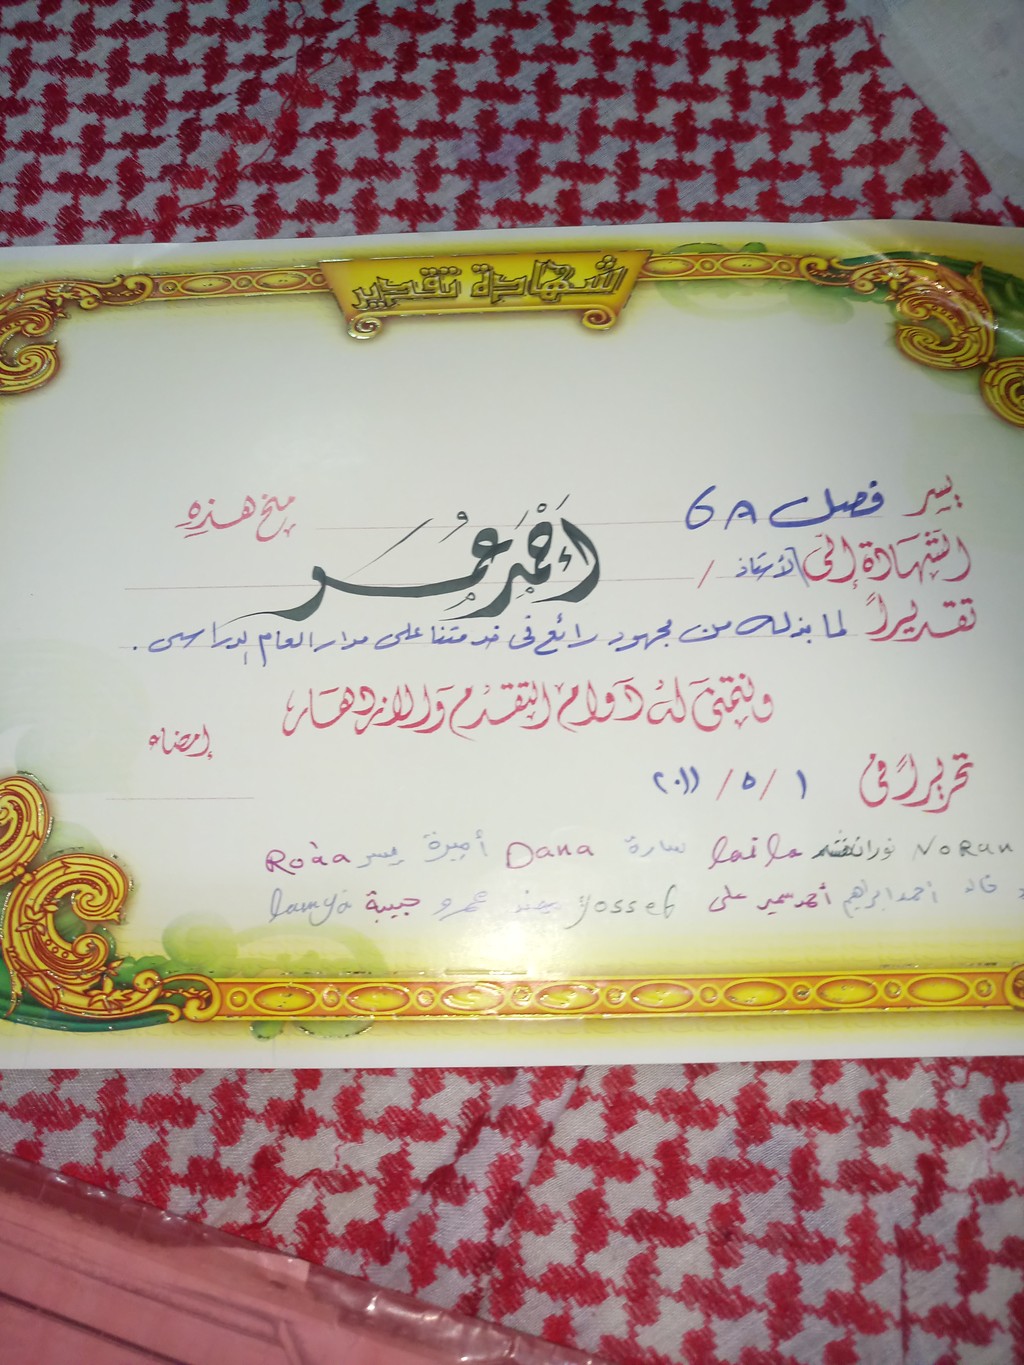 شهادة تقدير
يسر فصل 6A منح هذه
الشهادة إلى الأستاذ / أحمد عمر
تقديراً لما بذله من مجهود رائع فى خدمتنا على مدار العام الدراسى .
ونتمنى له دوام التقدم والازدهار
إمضاء
تحريراً فى ١ / ٥ / ٢٠١١
Noran نورا laila سارة Dana أميرة يسر Roàa
خالد أحمد ابراهيم أحمد سمير على yossef مهند عمرو حبيبة lamya